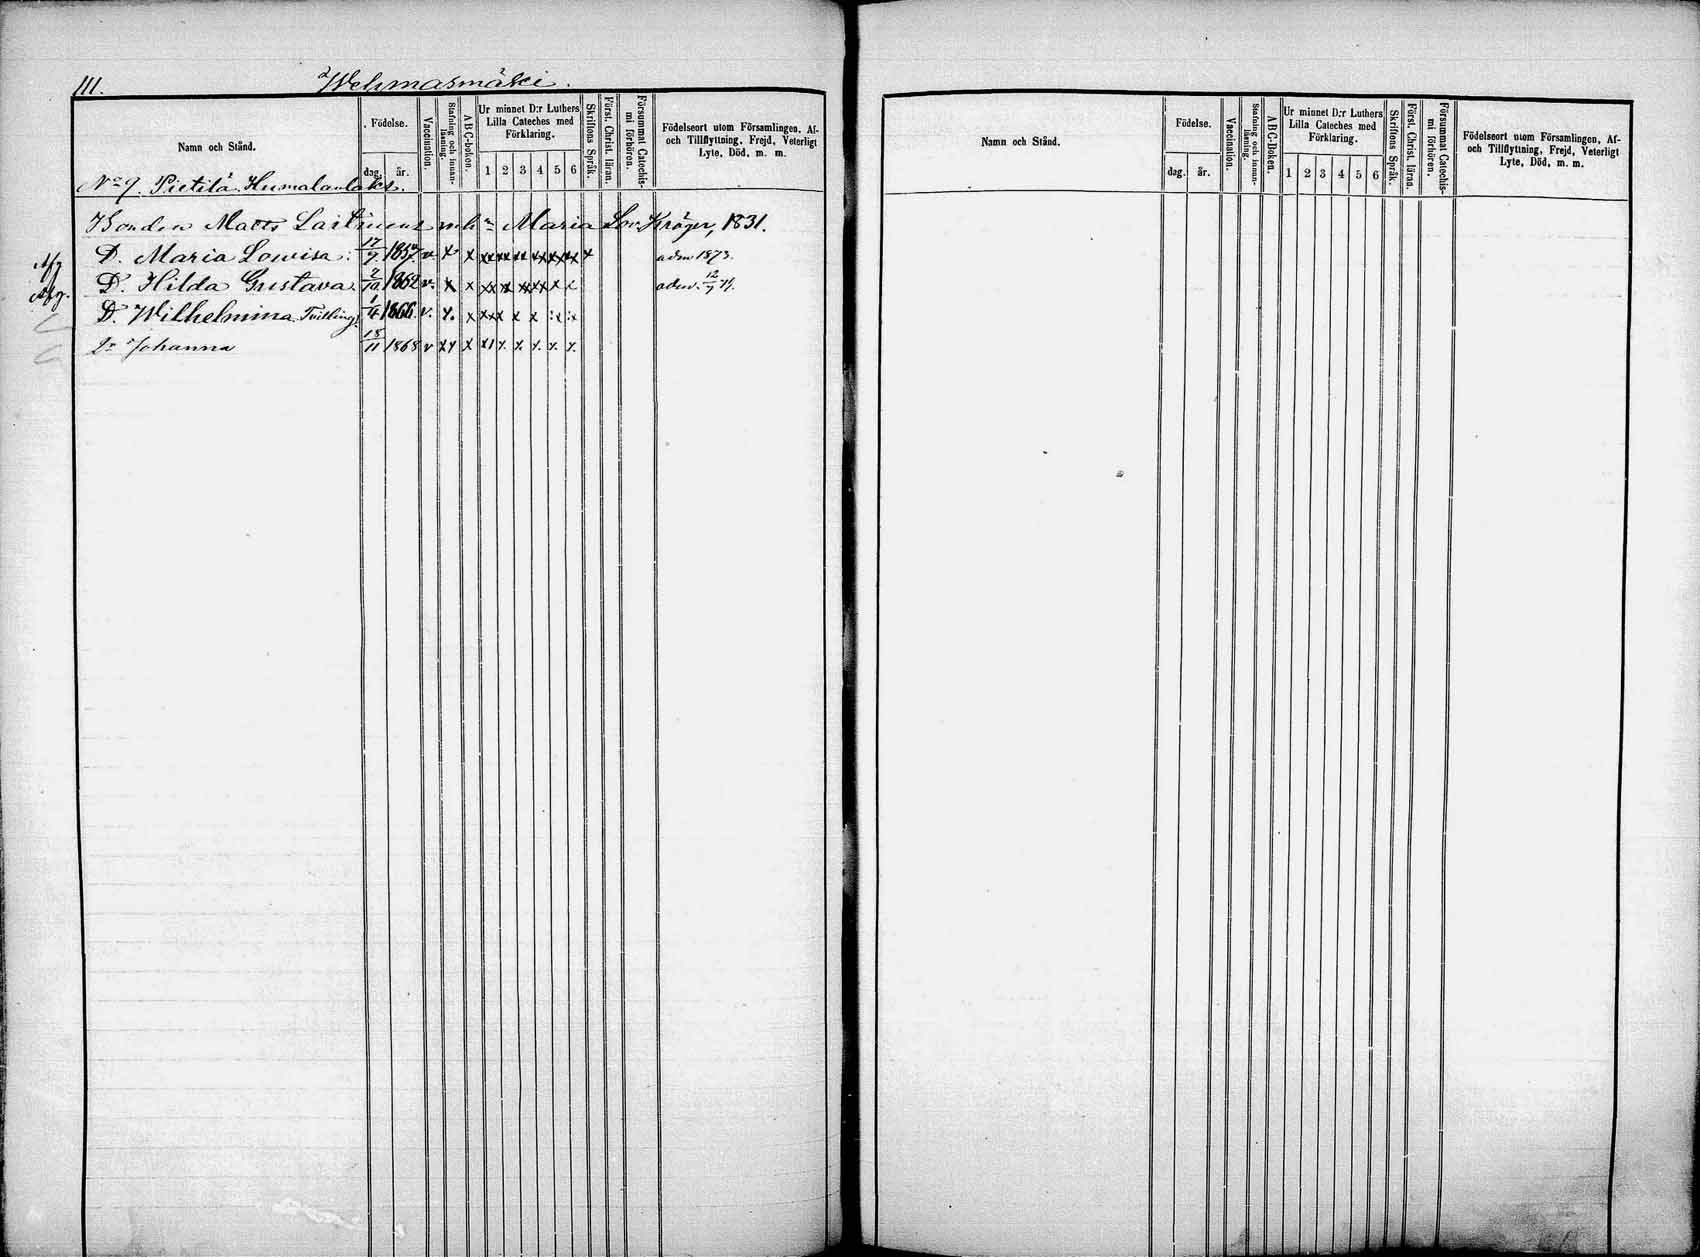 111.
Wehmasmäki.
Namn och Stånd.
Födelse.
dag.
år.
Vaccination.
Stafning och innan-
läsning.
ABC-boken.
Ur minnet D:r Luthers
Lilla Cateches med
Förklaring.
1 2 3 4 5 6
Skriftens Språk.
Först. Christ. läran.
Försummat Catechis-
mi förhören.
Födelseort utom Församlingen, Af-
och Tillflyttning, Frejd, Veterligt
Lyte, Död, m. m.
No 9. Pietilä Humalanlaks.
Bonden Matts mh:n Maria Lov. Kröger, 1831.
D. Maria Lowisa 17/9 v. x x x x adm 1873.
D. Hilda Gustava 2/10 1862 v. x x adm. 12/7
D. Wilhelmina Tvilling 1/4 1866. v. x. x
Johanna 18/11 1868 v x x
Namn och Stånd.
Födelse.
dag.
år.
Vaccination.
Stafning och innan-
läsning.
ABC-Boken.
Ur minnet D:r Luthers
Lilla Cateches med
Förklaring.
1 2 3 4 5 6
Skriftens Språk.
Först. Christ. läran.
Försummat Catechis-
mi förhören.
Födelseort utom Församlingen, Af-
och Tillflyttning, Frejd, Veterligt
Lyte, Död, m. m.